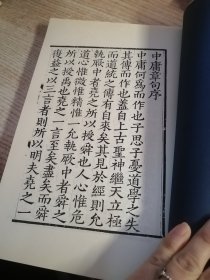 中庸章句序
中庸何爲而作也子思子憂道學之失
其傳而作也蓋自上古聖神繼天立極
而道統之傳有自來矣其見於經則允
執厥中者堯之所以授舜也人心惟危
道心惟微惟精惟一允執厥中者舜之
所以授禹也堯之一言至矣盡矣而舜
復益之以三言者則所以明夫堯之一